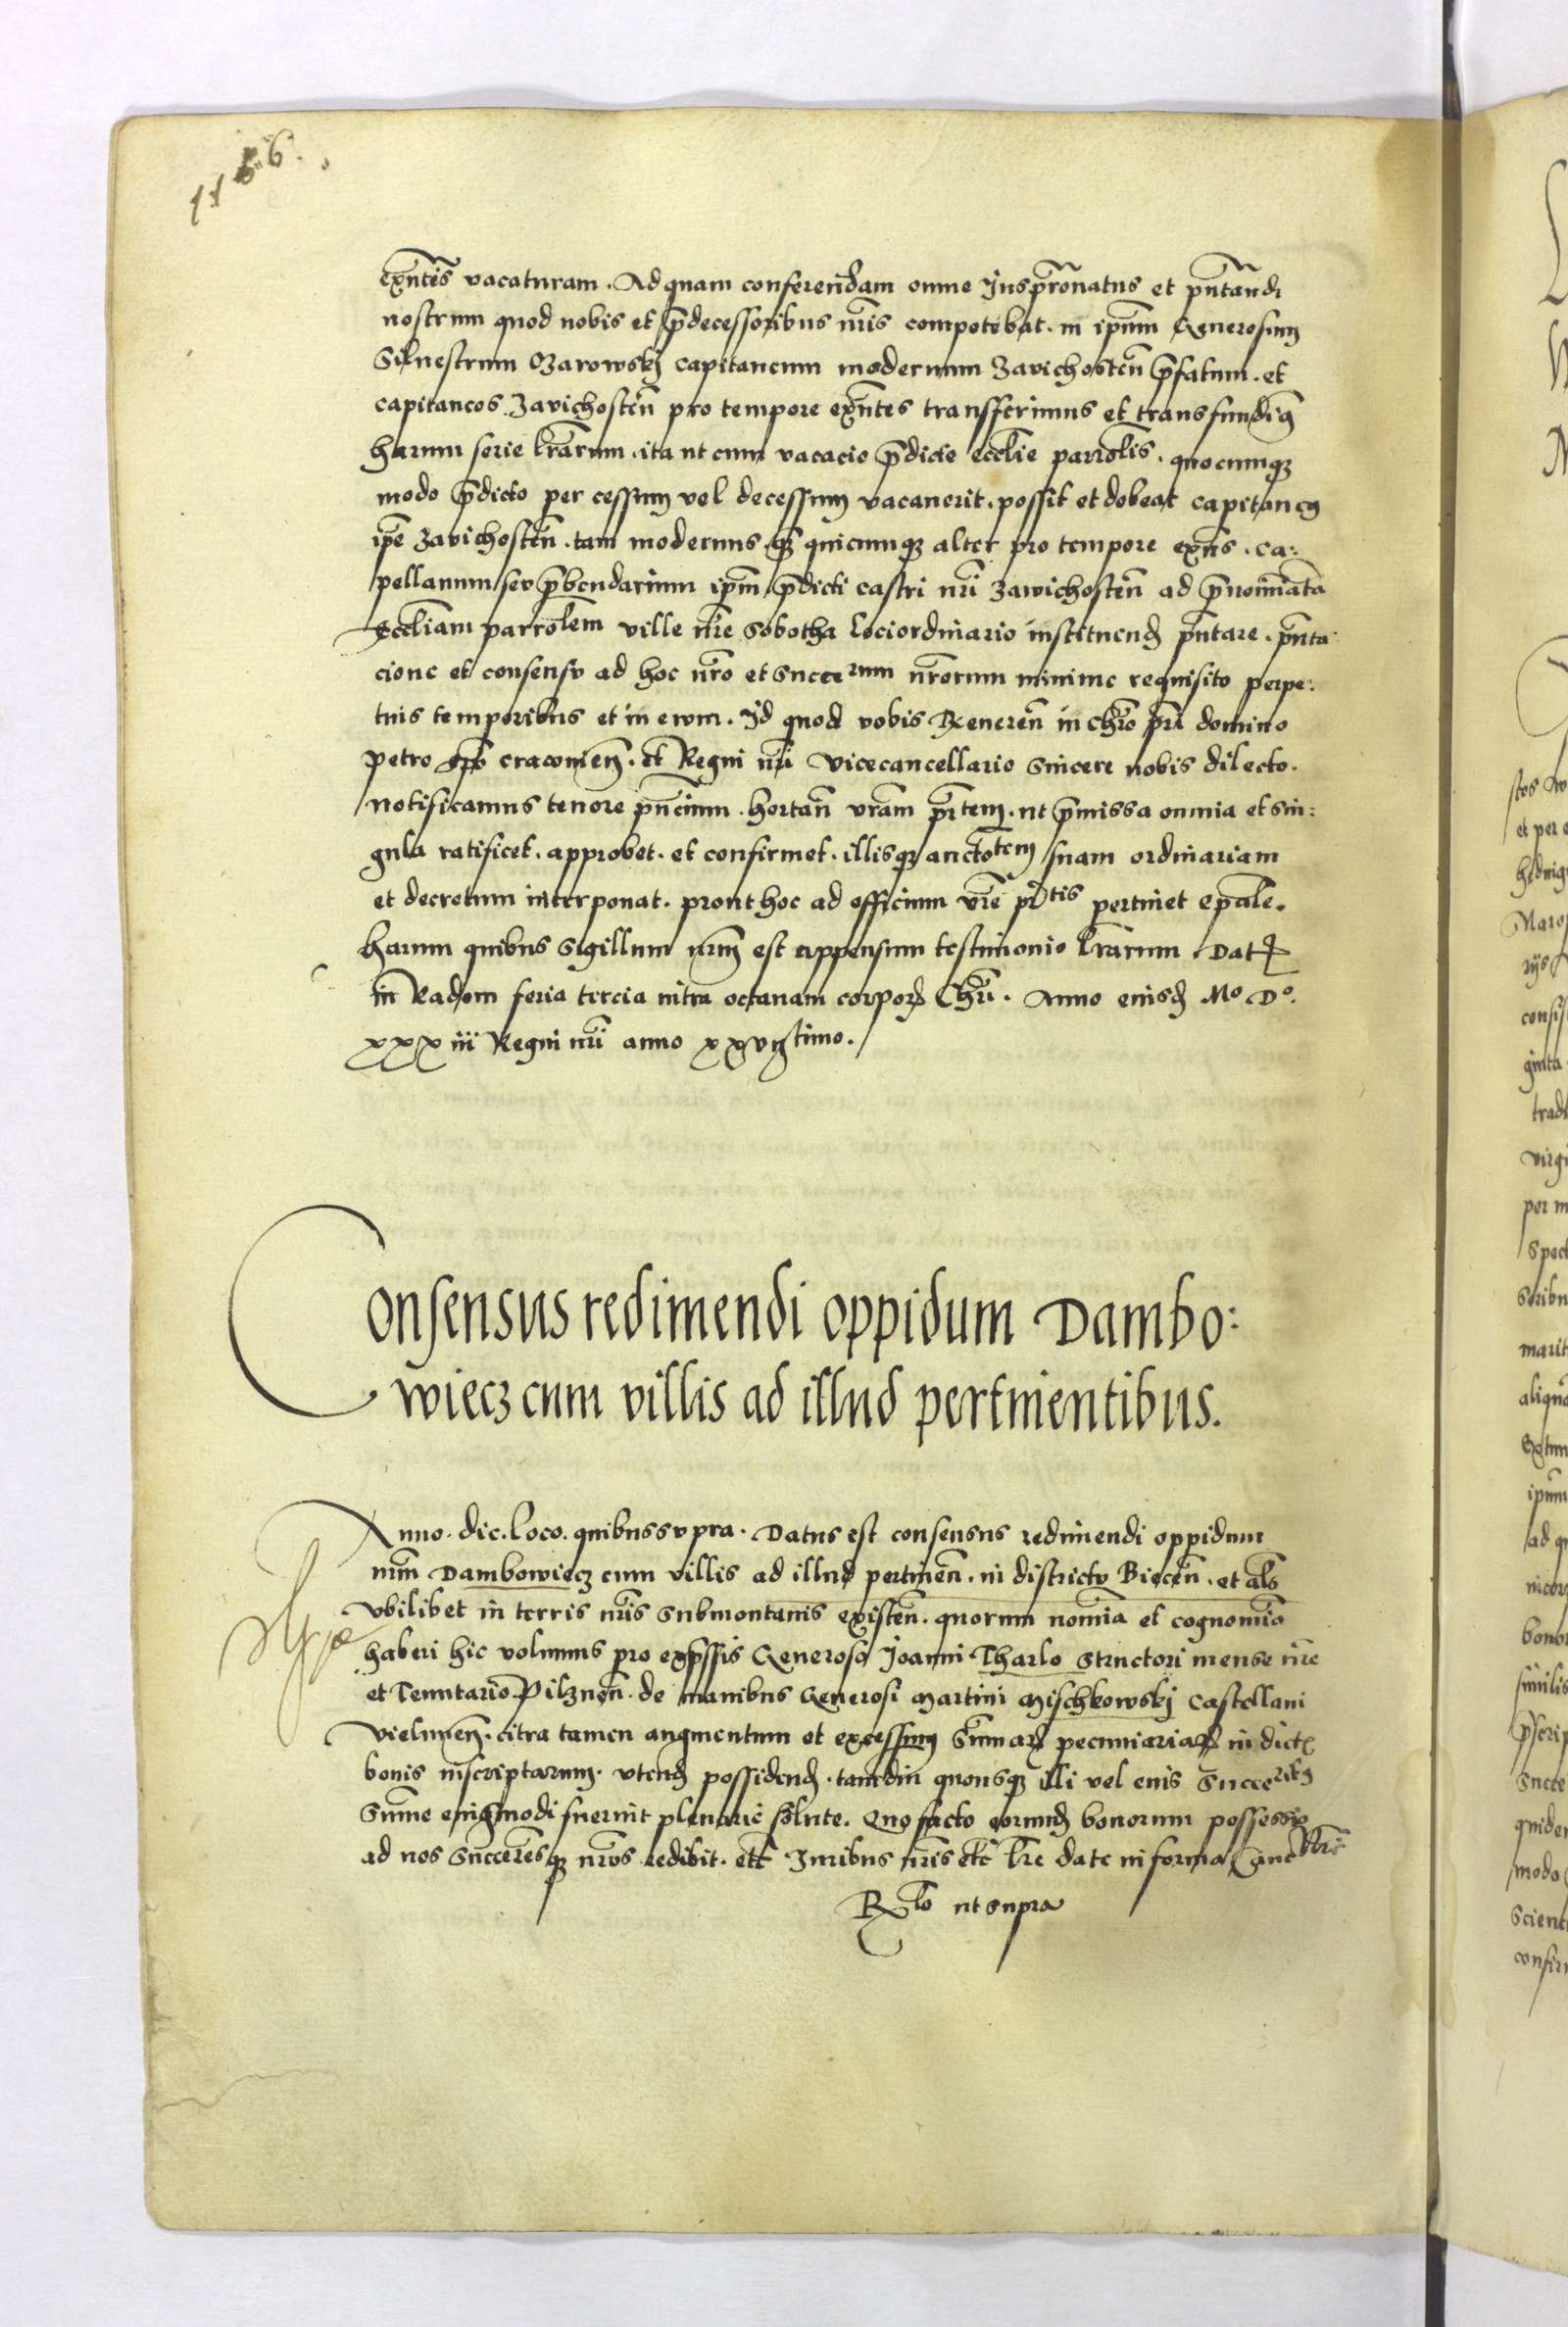 exñtẽs vacaturam. Ad quam conferendam omne Juspr̃onatus et pñtandi
nostrum quod nobis et p̃decessoribus nr̃is competebat. in ipsum Generosum
Silvestrum Ozarowskj capitaneum modernum Zavichosteñ p̃fatum. et
capitaneos Zavichosteñ pro tempore exñtes transfferimus et transfundimꝰ
harum serie lr̃arum. ita ut cum vacacio p̃dicte eccl̃ie parrol̃is. quocumqꝫ
modo p̃dicto per cessum vel decessum vacaverit. possit et debeat capitaneꝰ
ip̃e Zavichosteñ. tam modernus. qꝫ quicumqꝫ alter pro tempore exñs. ca:
pellanum sev p̃bendarium ip̃m p̃dicti castri nr̃i Zawichosteñ ad p̃noĩata
Eccl̃iam parrolem ville nr̃e Sobotha lociordinario instituend̃ pñtare. pñta
cione et consensv ad hoc nr̃o et Succerum nr̃orum minime requisito perpe:
tuis temporibus et in evum. Id quod vobis Revereñ in chr̃o pr̃i domino
petro ep̃o cracovieñ. et Regni nr̃i vicecancellario sincere nobis dilecto.
notificamus tenore pñcium. hortañ vr̃am pr̃tem. ut p̃missa omnia et sin:
gula ratificet. approbet. et confirmet. illisqꝫ auctotem suam ordinariam
et decretum interponat. prout hoc ad officium vr̃e pr̃tis pertinet ep̃ale.
harum quibus Sigillum nr̃m est appensum testimonio lr̃arum Datꝝ
in Radom feria tercia infra octavam corporis Chr̃i. Anno eiusd̃ Mo Do.
xxxiii Regni nr̃i anno xxvijtimo.
Consensus redimendi oppidum Dambo:
wiecz cum villis ad illud pertinentibus.
Anno. die. loco. quibussvpra. Datus est consensus redimendi oppidum
nr̃m Dambowiecz cum villis ad illud pertineñ. in districtv Bieceñ. et al̃s
vbilibet in terris nr̃is submontanis existeñ. quorum nomĩa et cognomĩa
haberi hic volumus pro exp̃ssis Generoso Joanni Tharlo Structori mense nr̃e
et Tenutario Pilzneñ. de manibus Generosi Martini Mischkowskj Castellani
Vielumeñ. citra tamen augmentum et excessum sum̃arꝫ pecuniariarꝫ in dictꝭ
bonis inscriptarum. vtend̃ possidend̃. tamdiu quousqꝫ illi vel eius Succeribꝰ
Sum̃e eiusmodi fuerint plenarie solute. Quo facto eorumd̃ bonorum possessio
ad nos Succeresqꝫ nr̃os redibit. etc̃ Juribus nr̃is etc̃ lr̃e date in forma Cancellrie
Rlo ut supra